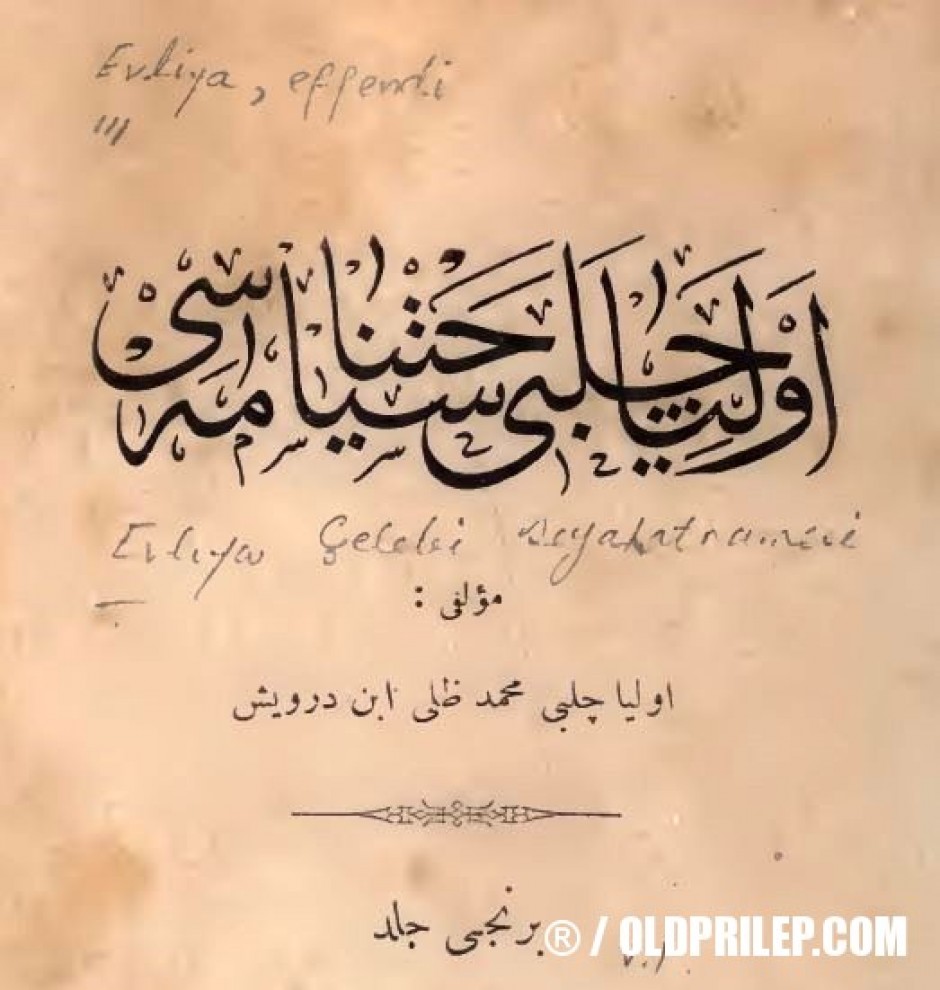 Evliya, effendi
"'
اوليا چلبى سياحتنامه سى
Evliya Çelebi seyahatnamesi
مؤلفى :
اوليا چلبى محمد ظلى ابن درويش
برنجى جلد
v.1
® / OLDPRILEP.COM